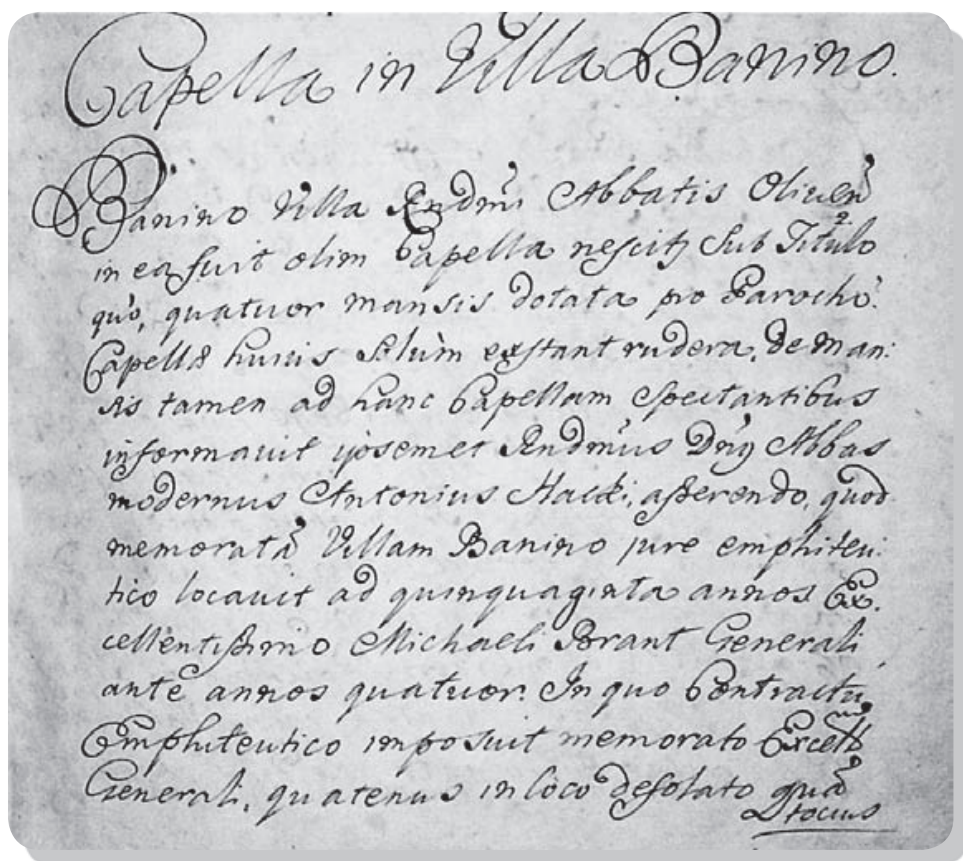 Capella in Villa Banino.
Banino Villa Rndmi Abbatis Oliuen
in ea fuit olim Capella nescitz sub Titulo
quo, quatuor mansis dotata pro Parocho.
Capellæ huius solùm exstant rudera, de Man:
sis tamen ad hanc Capellam spectantibus
informauit ipsemet Rndmus Dnus Abbas
modernus Antonius Hacki, asserendo, quod
memoratã Villam Banino jure emphiteu:
tico locauit ad quinquaginta annos Ex.
cellentissimo Michaeli Brant Generali
ante annos quatuor. In quo Contractu
Emphiteutico imposuit memorato
Generali, quatenus in loco desolato